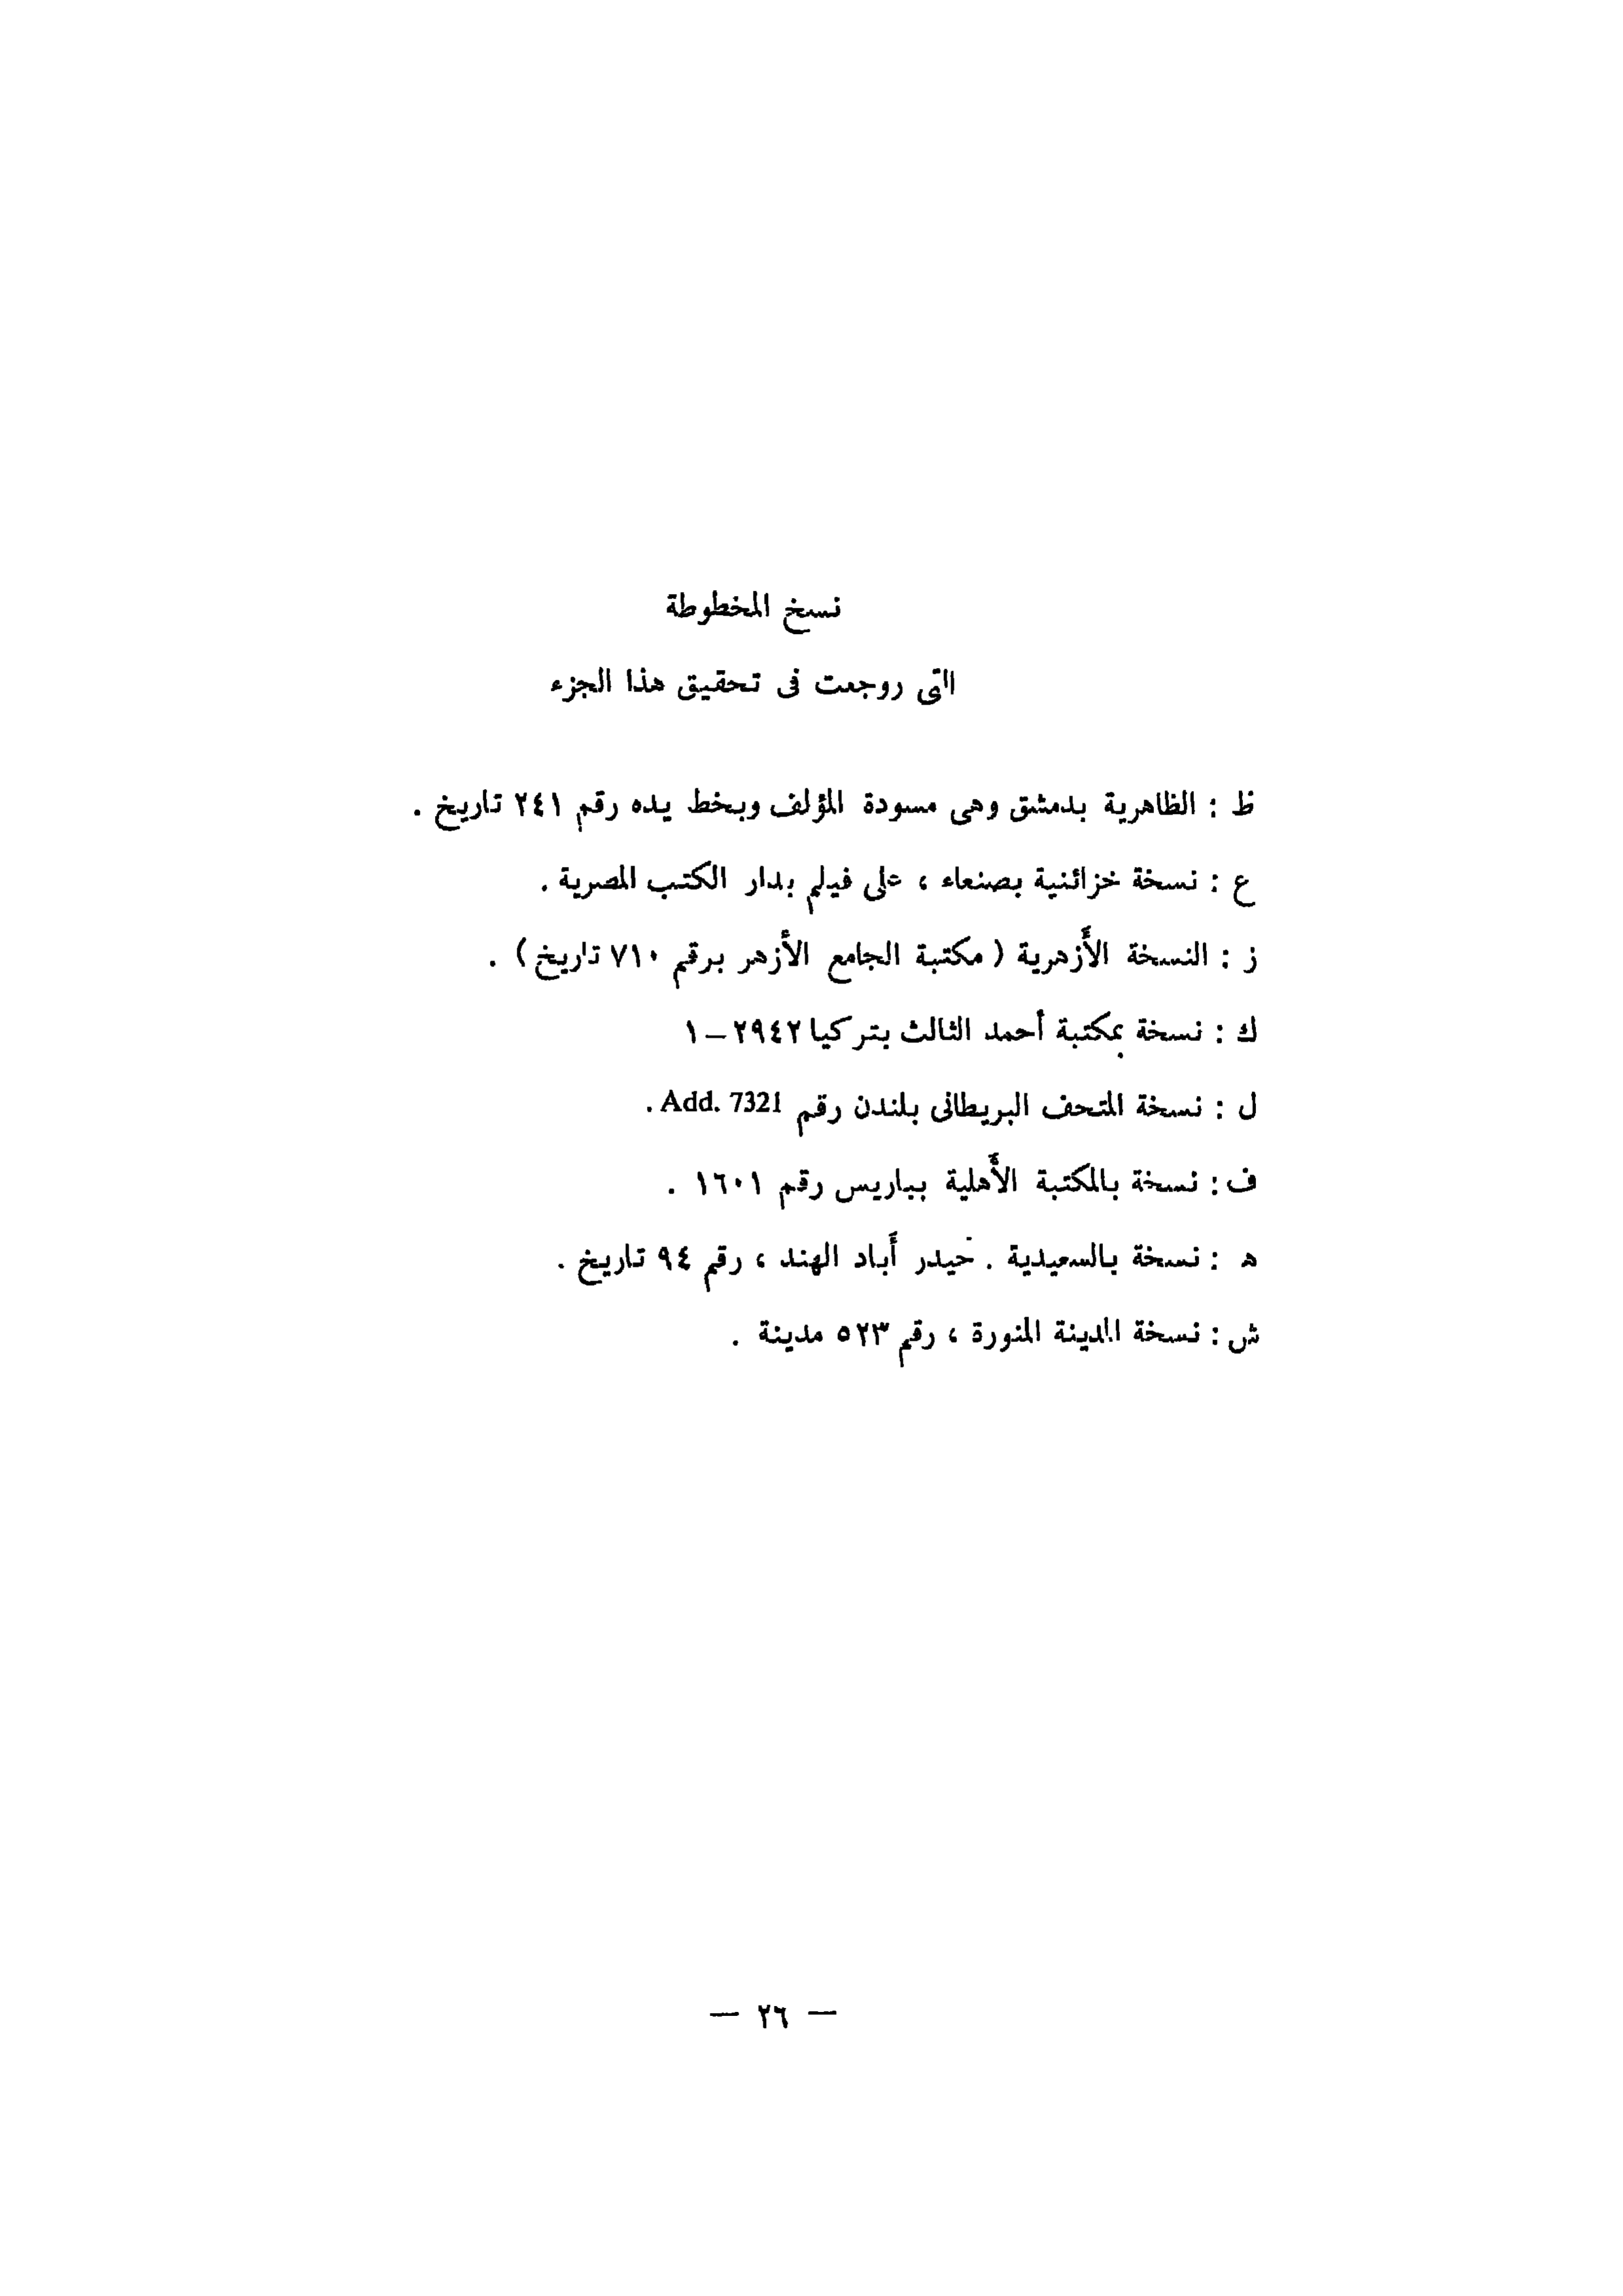 نسخ المخطوطة
التى روجعت فى تحقيق هذا الجزء
ظ : الظاهرية بدمشق وهى مسودة المؤلف وبخط يده رقم ٢٤١ تاريخ .
ع : نسخة خزائنية بصنعاء ، على فيلم بدار الكتب المصرية .
ز : النسخة الأَزهرية ( مكتبة الجامع الأزهر برقم ٧١٠ تاريخ ) .
ك : نسخة بمكتبة أحمد الثالث بتركيا ٢٩٤٢ – ١
ل : نسخة المتحف البريطانى بلندن رقم Add. 7321 .
ف : نسخة بالمكتبة الأَهلية بباريس رقم ١٦٠١ .
ه : نسخة بالسعيدية . حيدر أَباد الهند ، رقم ٩٤ تاريخ .
ش : نسخة المدينة المنورة ، رقم ٥٢٣ مدينة .
— ٢٦ —